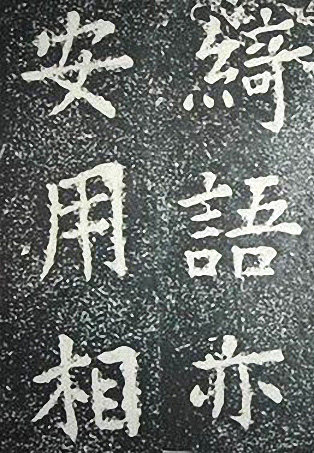 綺語亦
安用相